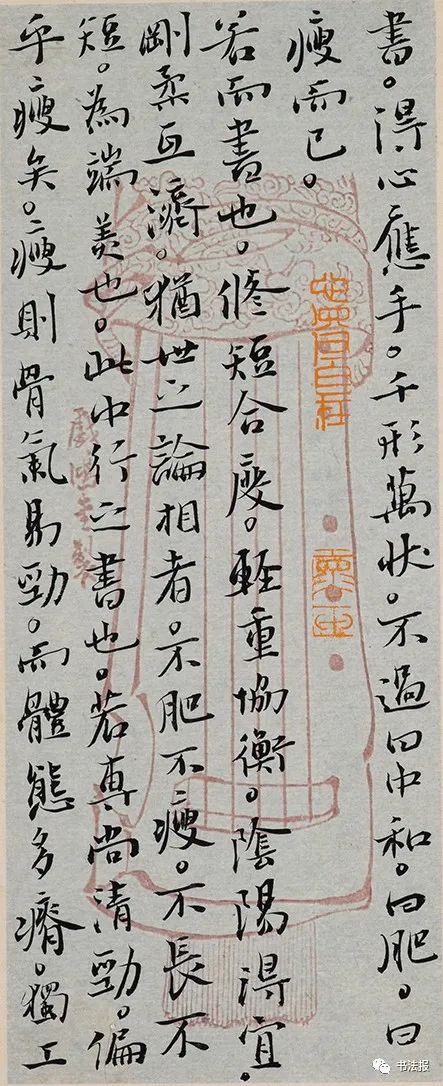 書。得心應手。千形萬狀。不過曰中和。曰肥。曰
瘦而已。
若而書也。修短合度。輕重協衡。陰陽得宜。
剛柔互濟。猶世之論相者。不肥不瘦。不長不
短。為端美也。此中行之書也。若專尚清勁。偏
乎瘦矣。瘦則骨氣易勁。而體態多瘠。獨工
书法报